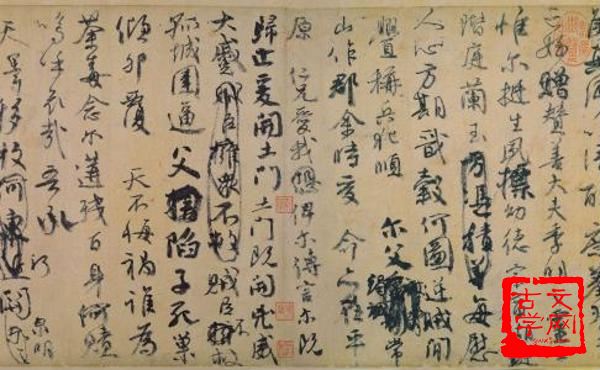 亡姪贈贊善大夫季明之靈
惟爾挺生夙標幼德宗廟瑚
階庭蘭玉方憑積善每慰
人心方期戩穀何圖逆賊間
釁稱兵犯順爾父竭誠常
山作郡余時受命亦在平
原仁兄愛我恐俾爾傳言爾既
歸止爰開土門土門既開凶威
大蹙賊臣擁眾不救賊臣不救
孤城圍逼父陷子死巢
傾卵覆天不悔禍誰為
荼毒念爾遘殘百身何贖
嗚呼哀哉吾承
泉明
天澤移牧河
古文学网